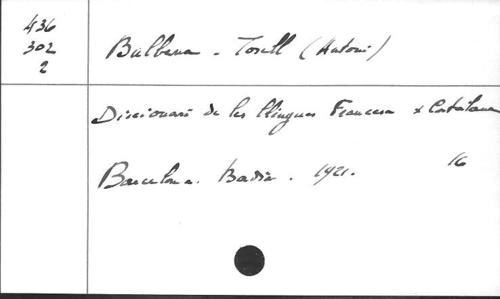 436
302
2
Bulbena - Tosell (Antoni)
Diccionari de les llengues Francesa & Catalana
Barcelona. Badia. 1921. 16